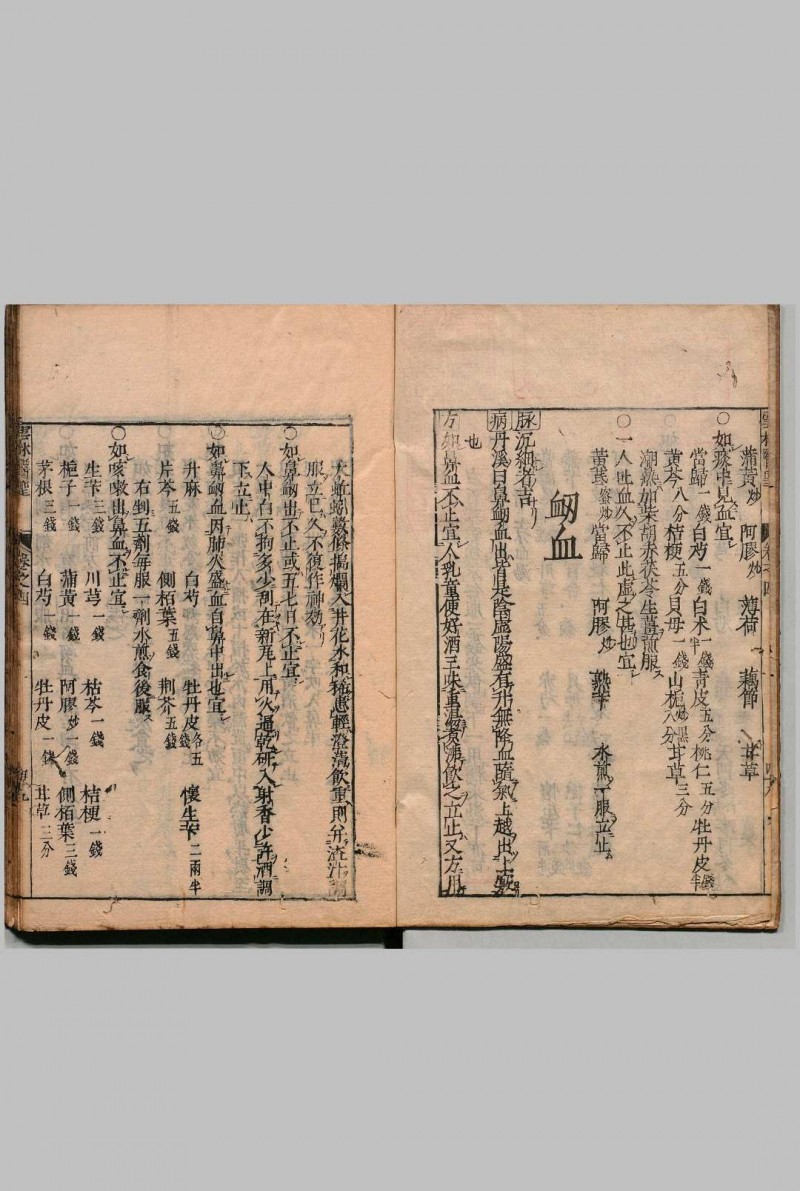 蒲黃炒 阿膠炒 薄荷 藕節 甘草
○如痰中見血宜
當歸一錢白芍一錢白朮一錢半青皮五分桃仁五分牡丹皮一錢半
黃芩八分桔梗五分貝母一錢山梔炒黑八分甘草三分
潮熱加柴胡赤茯苓生薑煎服
○一人吐血久不止此虛之甚也宜
黃芪蜜炒當歸 阿膠炒 熟芐 水煎一服立止
衂血
脉沉細者吉
病丹溪曰鼻衂血出皆是陰虛陽盛有升無降血隨氣上越出上竅
也
方如鼻血不止宜人乳童便好酒三味重湯煮沸飲之立止又方用
雲林醫聖 卷之四
大蚯蚓數條搗爛入井花水和稀患輕澄清飲重則并渣汁調
服立已久不復作神効
○如鼻衂出不止或五七日不止宜
人中白不拘多少刮在新瓦上用火逼乾研入射香少許酒調
下立止
○如鼻衂血因肺火盛血自鼻中出也宜
升麻 白芍 牡丹皮各五錢 懷生芐二兩半
片芩五錢 側栢葉五錢 荆芥五錢
右剉五劑每服一劑水煎食後服
○如咳嗽出鼻血不止宜
生芐三錢 川芎一錢 枯芩一錢 桔梗一錢
梔子一錢 蒲黃一錢 阿膠炒一錢 側栢葉三錢
茅根三錢 白芍一錢 牡丹皮一錢 甘草三分